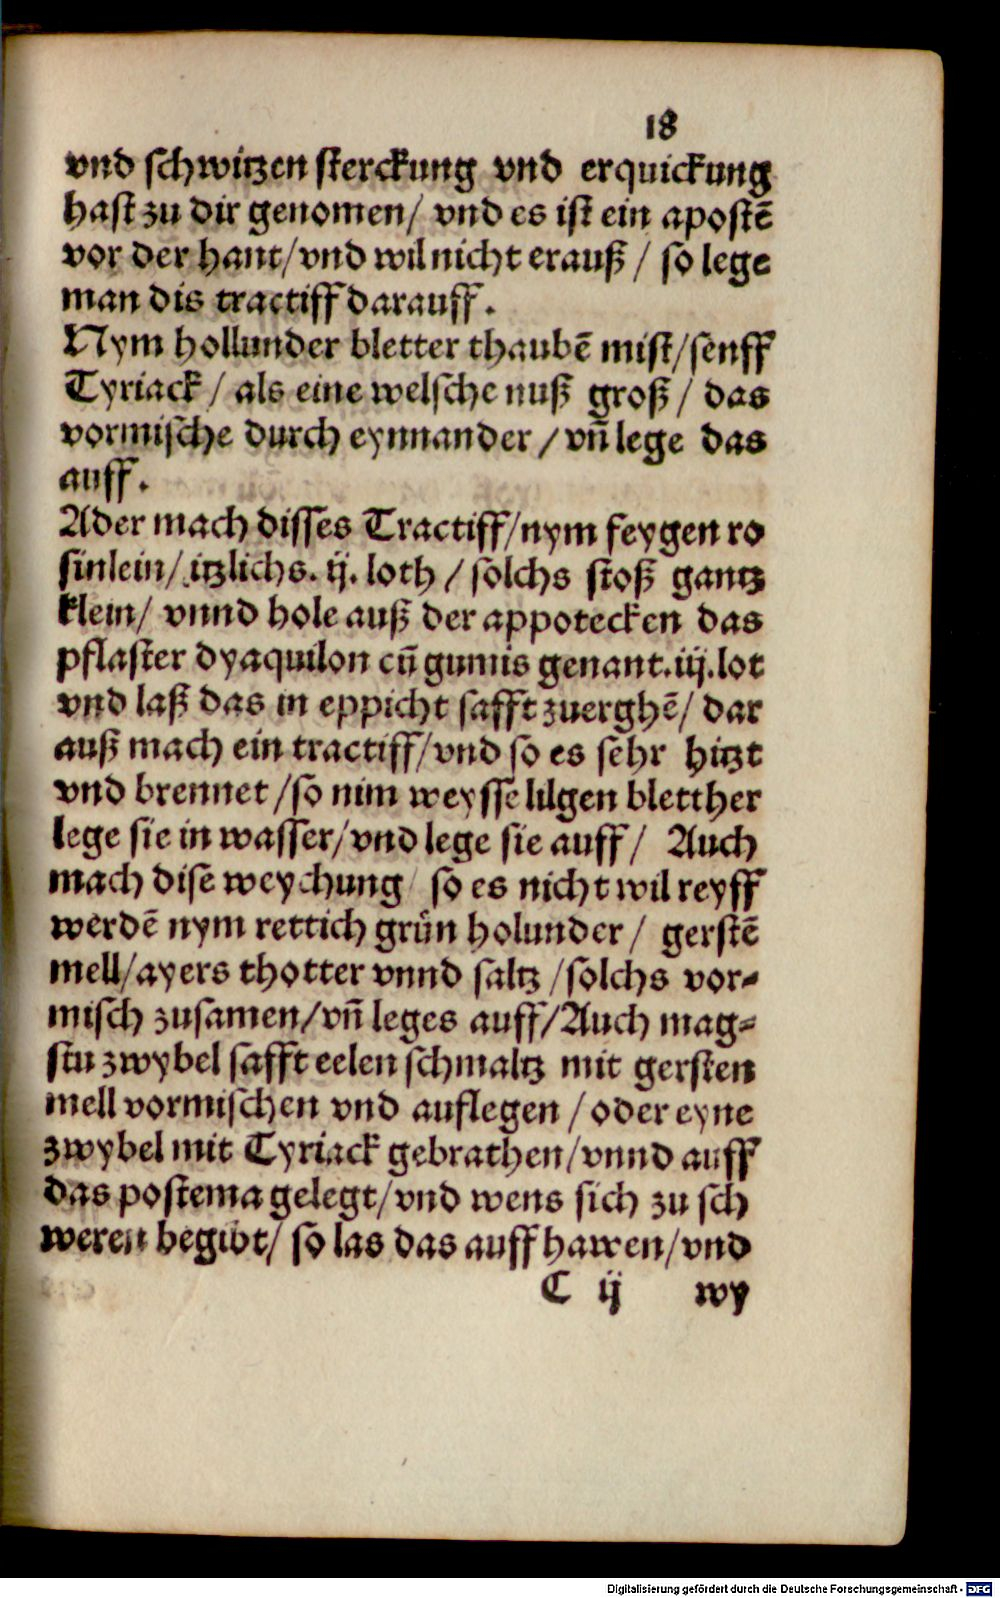 18
vnd schwitzen sterckung vnd erquickung
hast zu dir genomen/ vnd es ist ein apostē
vor der hant/vnd wil nicht erauß / so lege
man dis tractiff darauff.
Nym hollunder bletter thaubē mist/senff
Tyriack / als eine welsche nuß groß / das
vormische durch eynnander /vn̄ lege das
auff.
Ader mach disses Tractiff/nym feygen ro
sinlein/ itzlichs. ij. loth / solchs stoß gantz
klein/ vnnd hole auß der appotecken das
pflaster dyaquilon cū gumis genant.iij.lot
vnd laß das in eppicht safft zuerghē/ dar
auß mach ein tractiff/vnd so es sehr hitzt
vnd brennet /so nim weysse lilgen bletther
lege sie in wasser/vnd lege sie auff/ Auch
mach dise weychung/ so es nicht wil reyff
werdē nym rettich grün holunder / gerstē
mell/ayers thotter vnnd saltz /solchs vor-
misch zusamen/vn̄ leges auff/Auch mag-
stu zwybel safft eelen schmaltz mit gersten
mell vormischen vnd auflegen /oder eyne
zwybel mit Tyriack gebrathen/vnnd auff
das postema gelegt/vnd wens sich zu sch
weren begibt/ so las das auff hawen/vnd
C ij wy
Digitalisierung gefördert durch die Deutsche Forschungsgemeinschaft - DFG